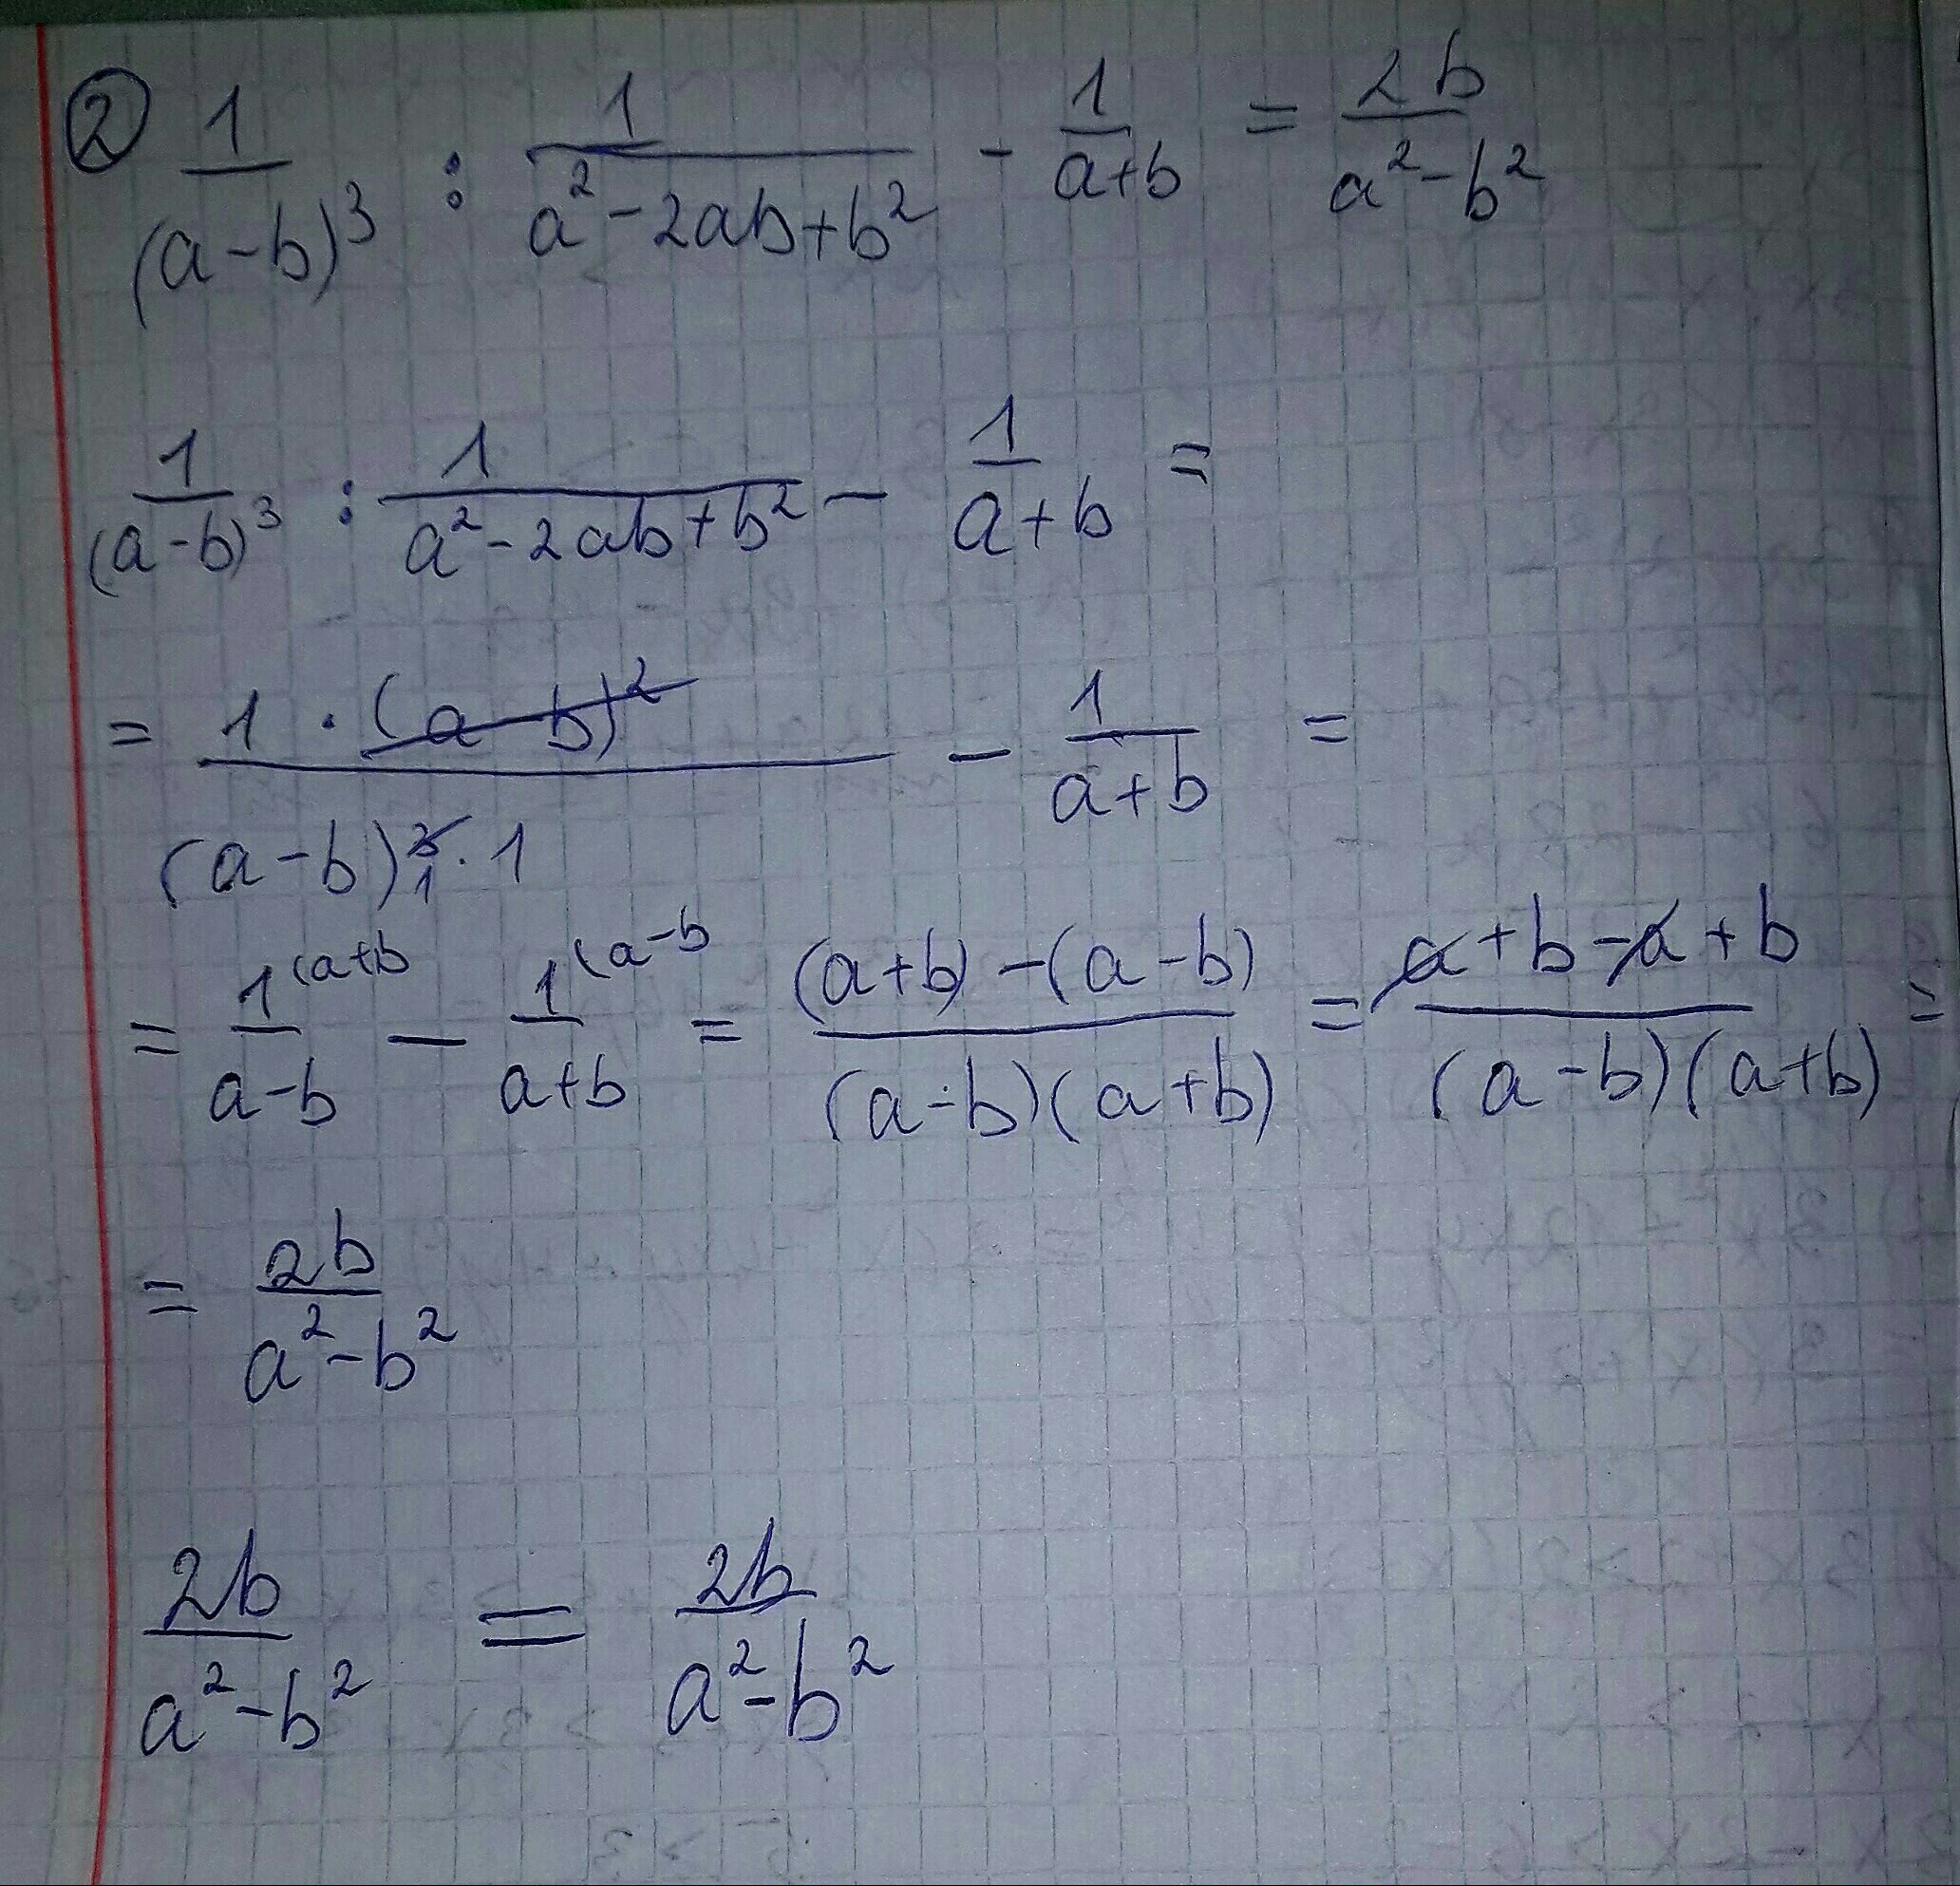 ② 1/(a-b)³ : 1/(a²-2ab+b²) - 1/(a+b) = 2b/(a²-b²)
1/(a-b)³ : 1/(a²-2ab+b²) - 1/(a+b) =
= (1·(a-b)²)/((a-b)³₁·1) - 1/(a+b) =
= 1⁽ᵃ⁺ᵇ/(a-b) - 1⁽ᵃ⁻ᵇ/(a+b) = ((a+b)-(a-b))/((a-b)(a+b)) = (a+b-a+b)/((a-b)(a+b)) =
= 2b/(a²-b²)
2b/(a²-b²) = 2b/(a²-b²)